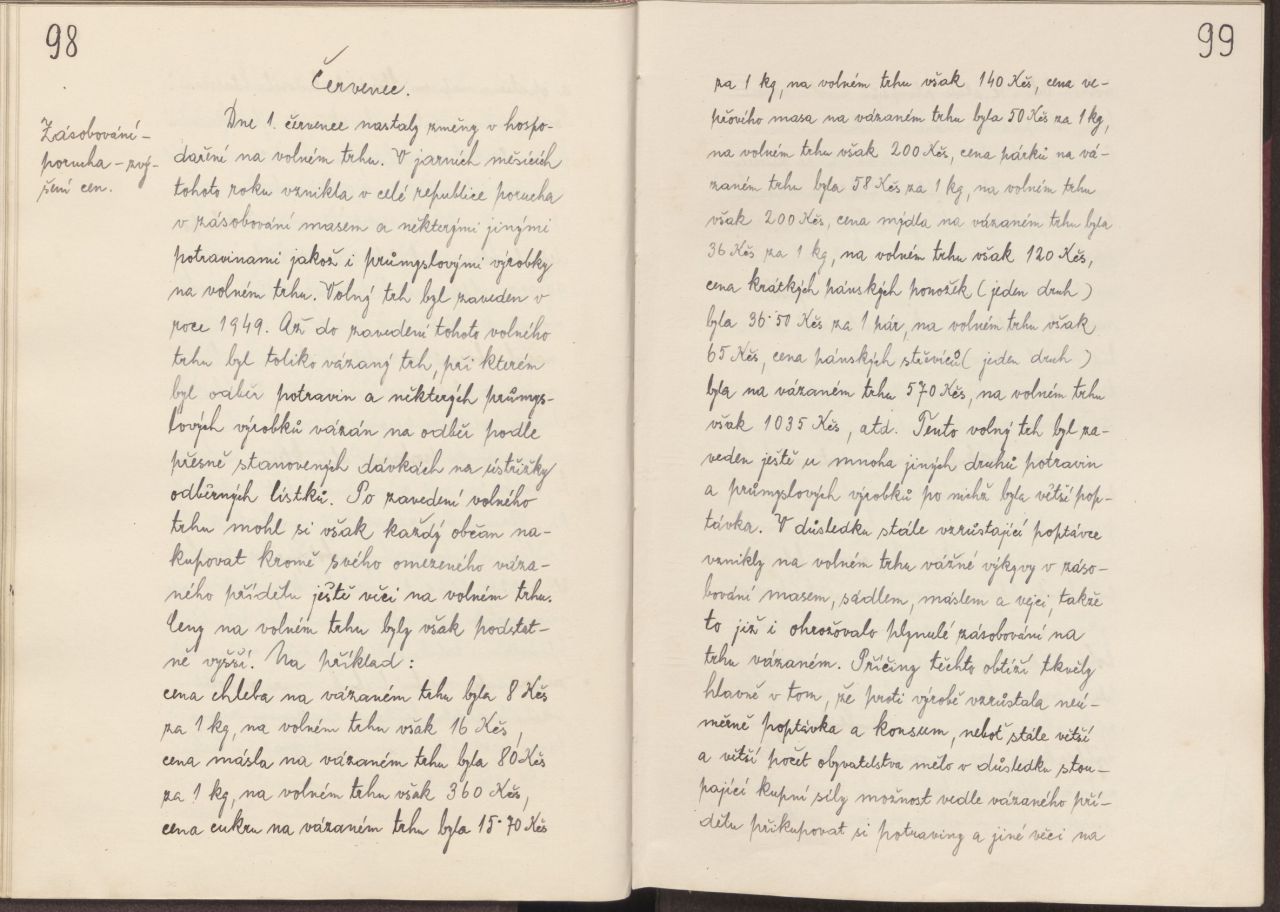 98
Červenec.
Zásobování-
porucha - zvý-
šení cen.
Dne 1. července nastaly změny v hospo-
daření na volném trhu. V jarních měsících
tohoto roku vznikla v celé republice porucha
v zásobování masem a některými jinými
potravinami jakož i průmyslovými výrobky
na volném trhu. Volný trh byl zaveden v
roce 1949. Až do zavedení tohoto volného
trhu byl toliko vázaný trh, při kterém
byl odběr potravin a některých průmys-
lových výrobků vázán na odběr podle
přesně stanovených dávkách na ústřižky
odběrných lístků. Po zavedení volného
trhu mohl si však každý občan na-
kupovat kromě svého omezeného váza-
ného přídělu ještě věci na volném trhu.
Ceny na volném trhu byly však podstat-
ně vyšší. Na příklad :
cena chleba na vázaném trhu byla 8 Kčs
za 1 kg, na volném trhu však 16 Kčs,
cena másla na vázaném trhu byla 80 Kčs
za 1 kg, na volném trhu však 360 Kčs,
cena cukru na vázaném trhu byla 15·70 Kčs
99
za 1 kg, na volném trhu však 140 Kčs, cena ve-
přového masa na vázaném trhu byla 50 Kčs za 1 kg,
na volném trhu však 200 Kčs, cena párků na vá-
zaném trhu byla 58 Kčs za 1 kg, na volném trhu
však 200 Kčs, cena mýdla na vázaném trhu byla
36 Kčs za 1 kg, na volném trhu však 120 Kčs,
cena krátkých pánských ponožek ( jeden druh )
byla 36·50 Kčs za 1 pár, na volném trhu však
65 Kčs, cena pánských střevíců ( jeden druh )
byla na vázaném trhu 570 Kčs, na volném trhu
však 1035 Kčs, atd. Tento volný trh byl za-
veden ještě u mnoha jiných druhů potravin
a průmyslových výrobků po nichž byla větší pop-
távka. V důsledku stále vzrůstající poptávce
vznikly na volném trhu vážné výkyvy v záso-
bování masem, sádlem, máslem a vejci takže
to již i ohrožovalo plynulé zásobování na
trhu vázaném. Příčiny těchto obtíží tkvěly
hlavně v tom, že proti výrobě vzrůstala neú-
měrně poptávka a konsum, neboť stále větší
a větší počet obyvatelstva mělo v důsledku stou-
pající kupní síly možnost vedle vázaného pří-
dělu přikupovat si potraviny a jiné věci na